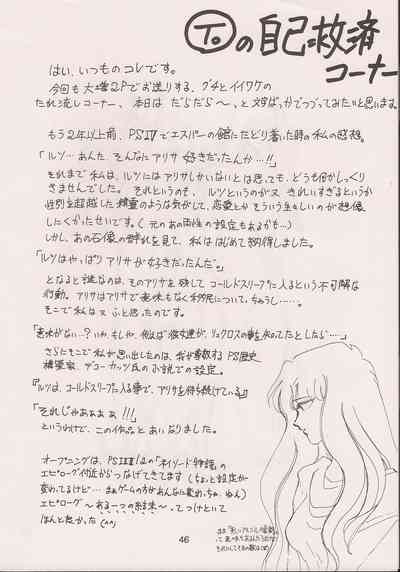 Toの自己救済
コーナー
はい、いつものコレです。
今回も大増2Pでお送りする、グチとイイワケの
たれ流しコーナー、本日はだらだら〜、と対ばっかでつづってみたいと思います。
もう2年以上前、PSⅣでエスパーの館にたどり着いた時の私の感想。
「ルツ…あんた、そんなにアリサ好きだったんか…!!」
それまで私は、ルツにはアリサしかいないとは思っても、どうも何かしっくり
きませんでした。それというのも、ルツというのが又きれいすぎるというか
性別を超越した精霊のような気がして、恋愛とかそういう生々しいのが想像
しにくかったせいです。(元のあの両性の設定もあるかも…)
しかし、あの石像の群れを見て、私ははじめて納得しました。
「ルツはやっぱりアリサが好きだったんだ。」
となると謎なのは、そのアリサを残してコールドスリープに入るという不可解な
行動。アリサはアリサで意味もなく移民についてっちゃうし……。
そこで私は又ふと思ったのです。
「意味がない…?いや、もしや、例えば彼女達が、リュクロスの事を知ってたとしたら…」
さらにそこで私が思い出したのは、我が尊敬するPS歴史
構築家、デューカッツ氏のお説での設定。
『ルツは、コールドスリープに入る事で、アリサを待ち続けている』
「それじゃああぁぁ!!!」
というわけで、この作品とあいなりました。
オープニングは、PSⅡ
エピローグ付近からつなげてきてます(ちょっと設定が
変わってるけど…まぁゲームの方があんなに変わっちゃねん)
エピローグ〜ある一つの結末〜、てつけといて
ほんと良かった(^^)
46